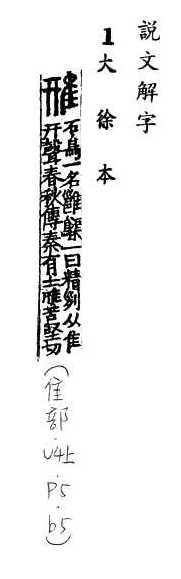 説文解字
1大徐本
雃石鳥一名雝𪆫一曰精列从隹
幵聲春秋傳秦有士雃苦堅切
(隹部.U4上.P5.b5)